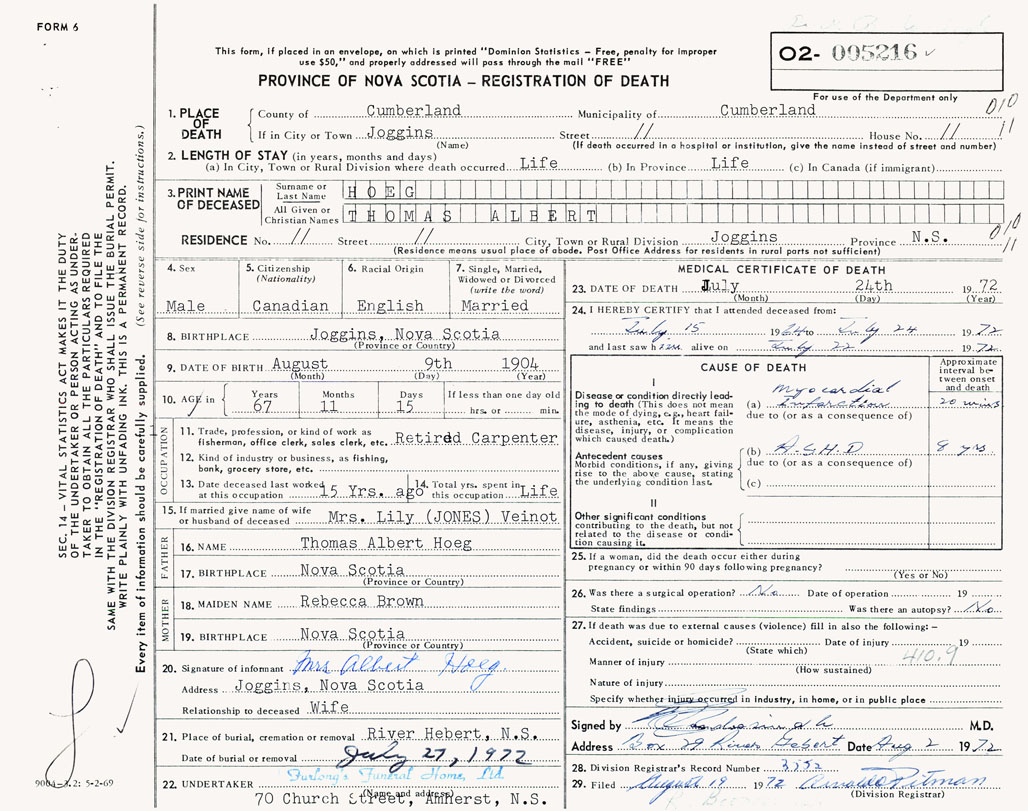 FORM 6
This form, if placed in an envelope, on which is printed "Dominion Statistics – Free, penalty for improper
use $50," and properly addressed will pass through the mail "FREE"
PROVINCE OF NOVA SCOTIA – REGISTRATION OF DEATH
02- 005216
For use of the Department only
010
11
1. PLACE OF DEATH
County of Cumberland Municipality of Cumberland
If in City or Town Joggins Street // House No. //
(Name) (If death occurred in a hospital or institution, give the name instead of street and number)
2. LENGTH OF STAY (in years, months and days)
(a) In City, Town or Rural Division where death occurred Life (b) In Province Life (c) In Canada (if immigrant)
3. PRINT NAME OF DECEASED
Surname or Last Name HOEG
All Given or Christian Names THOMAS ALBERT
010
11
RESIDENCE No. // Street // City, Town or Rural Division Joggins Province N.S.
(Residence means usual place of abode. Post Office Address for residents in rural parts not sufficient)
4. Sex
Male
5. Citizenship
(Nationality)
Canadian
6. Racial Origin
English
7. Single, Married,
Widowed or Divorced
(write the word)
Married
8. BIRTHPLACE Joggins, Nova Scotia
(Province or Country)
9. DATE OF BIRTH August 9th 1904
(Month) (Day) (Year)
10. AGE Years Months Days If less than one day old
67 11 15 hrs. or min.
OCCUPATION
11. Trade, profession, or kind of work as
fisherman, office clerk, sales clerk, etc. Retired Carpenter
12. Kind of industry or business, as fishing,
bank, grocery store, etc.
13. Date deceased last worked
at this occupation 15 Yrs. ago
14. Total yrs. spent in
this occupation Life
15. If married give name of wife
or husband of deceased Mrs. Lily (JONES) Veinot
FATHER
16. NAME Thomas Albert Hoeg
17. BIRTHPLACE Nova Scotia
(Province or Country)
MOTHER
18. MAIDEN NAME Rebecca Brown
19. BIRTHPLACE Nova Scotia
(Province or Country)
20. Signature of informant Mrs Albert Hoeg.
Address Joggins, Nova Scotia
Relationship to deceased Wife
21. Place of burial, cremation or removal River Hebert, N.S.
Date of burial or removal July 27, 1972
Furlong's Funeral Home, Ltd
22. UNDERTAKER (Name and address)
70 Church Street, Amherst, N.S.
MEDICAL CERTIFICATE OF DEATH
23. DATE OF DEATH July 24th 1972
(Month) (Day) (Year)
24. I HEREBY CERTIFY that I attended deceased from:
July 15 1964 to July 24 1972
and last saw him alive on July 22 1972
CAUSE OF DEATH
Approximate
interval be-
tween onset
and death
I
Disease or condition directly lead-
ing to death (This does not mean
the mode of dying, e.g., heart fail-
ure, asthenia, etc. It means the
disease, injury, or complication
which caused death.)
Myocardial
(a) Infarction 20 mins
due to (or as a consequence of)
Antecedent causes
Morbid conditions, if any, giving
rise to the above cause, stating
the underlying condition last.
(b) A.S.H.D 8 yrs
due to (or as a consequence of)
(c)
II
Other significant conditions
contributing to the death, but not
related to the disease or condi-
tion causing it.
25. If a woman, did the death occur either during
pregnancy or within 90 days following pregnancy?
(Yes or No)
26. Was there a surgical operation? No Date of operation 19
State findings Was there an autopsy? No
27. If death was due to external causes (violence) fill in also the following: –
Accident, suicide or homicide? Date of injury 19
(State which) 410.9
Manner of injury
(How sustained)
Nature of injury
Specify whether injury occurred in industry, in home, or in public place
Signed by M.D.
Address Box 29 River Hebert Date Aug 2 1972
28. Division Registrar's Record Number 3352
29. Filed August 19 1972 Pitman
(Division Registrar)
SEC. 14 – VITAL STATISTICS ACT MAKES IT THE DUTY
OF THE UNDERTAKER OR PERSON ACTING AS UNDER-
TAKER TO OBTAIN ALL THE PARTICULARS REQUIRED
IN THE "REGISTRATION OF DEATH" AND TO FILE THE
SAME WITH THE DIVISION REGISTRAR WHO SHALL ISSUE THE BURIAL PERMIT.
WRITE PLAINLY WITH UNFADING INK. THIS IS A PERMANENT RECORD.
Every item of information should be carefully supplied. (See reverse side for instructions.)
900A-3.2: 5-2-69